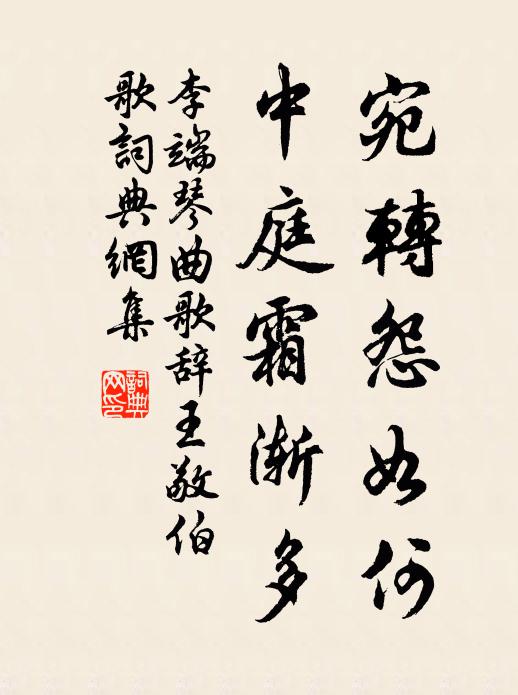 宛轉怨如何
中庭霜漸多
李端琴曲歌辞王敬伯
歌詞典網集
詞典
网印